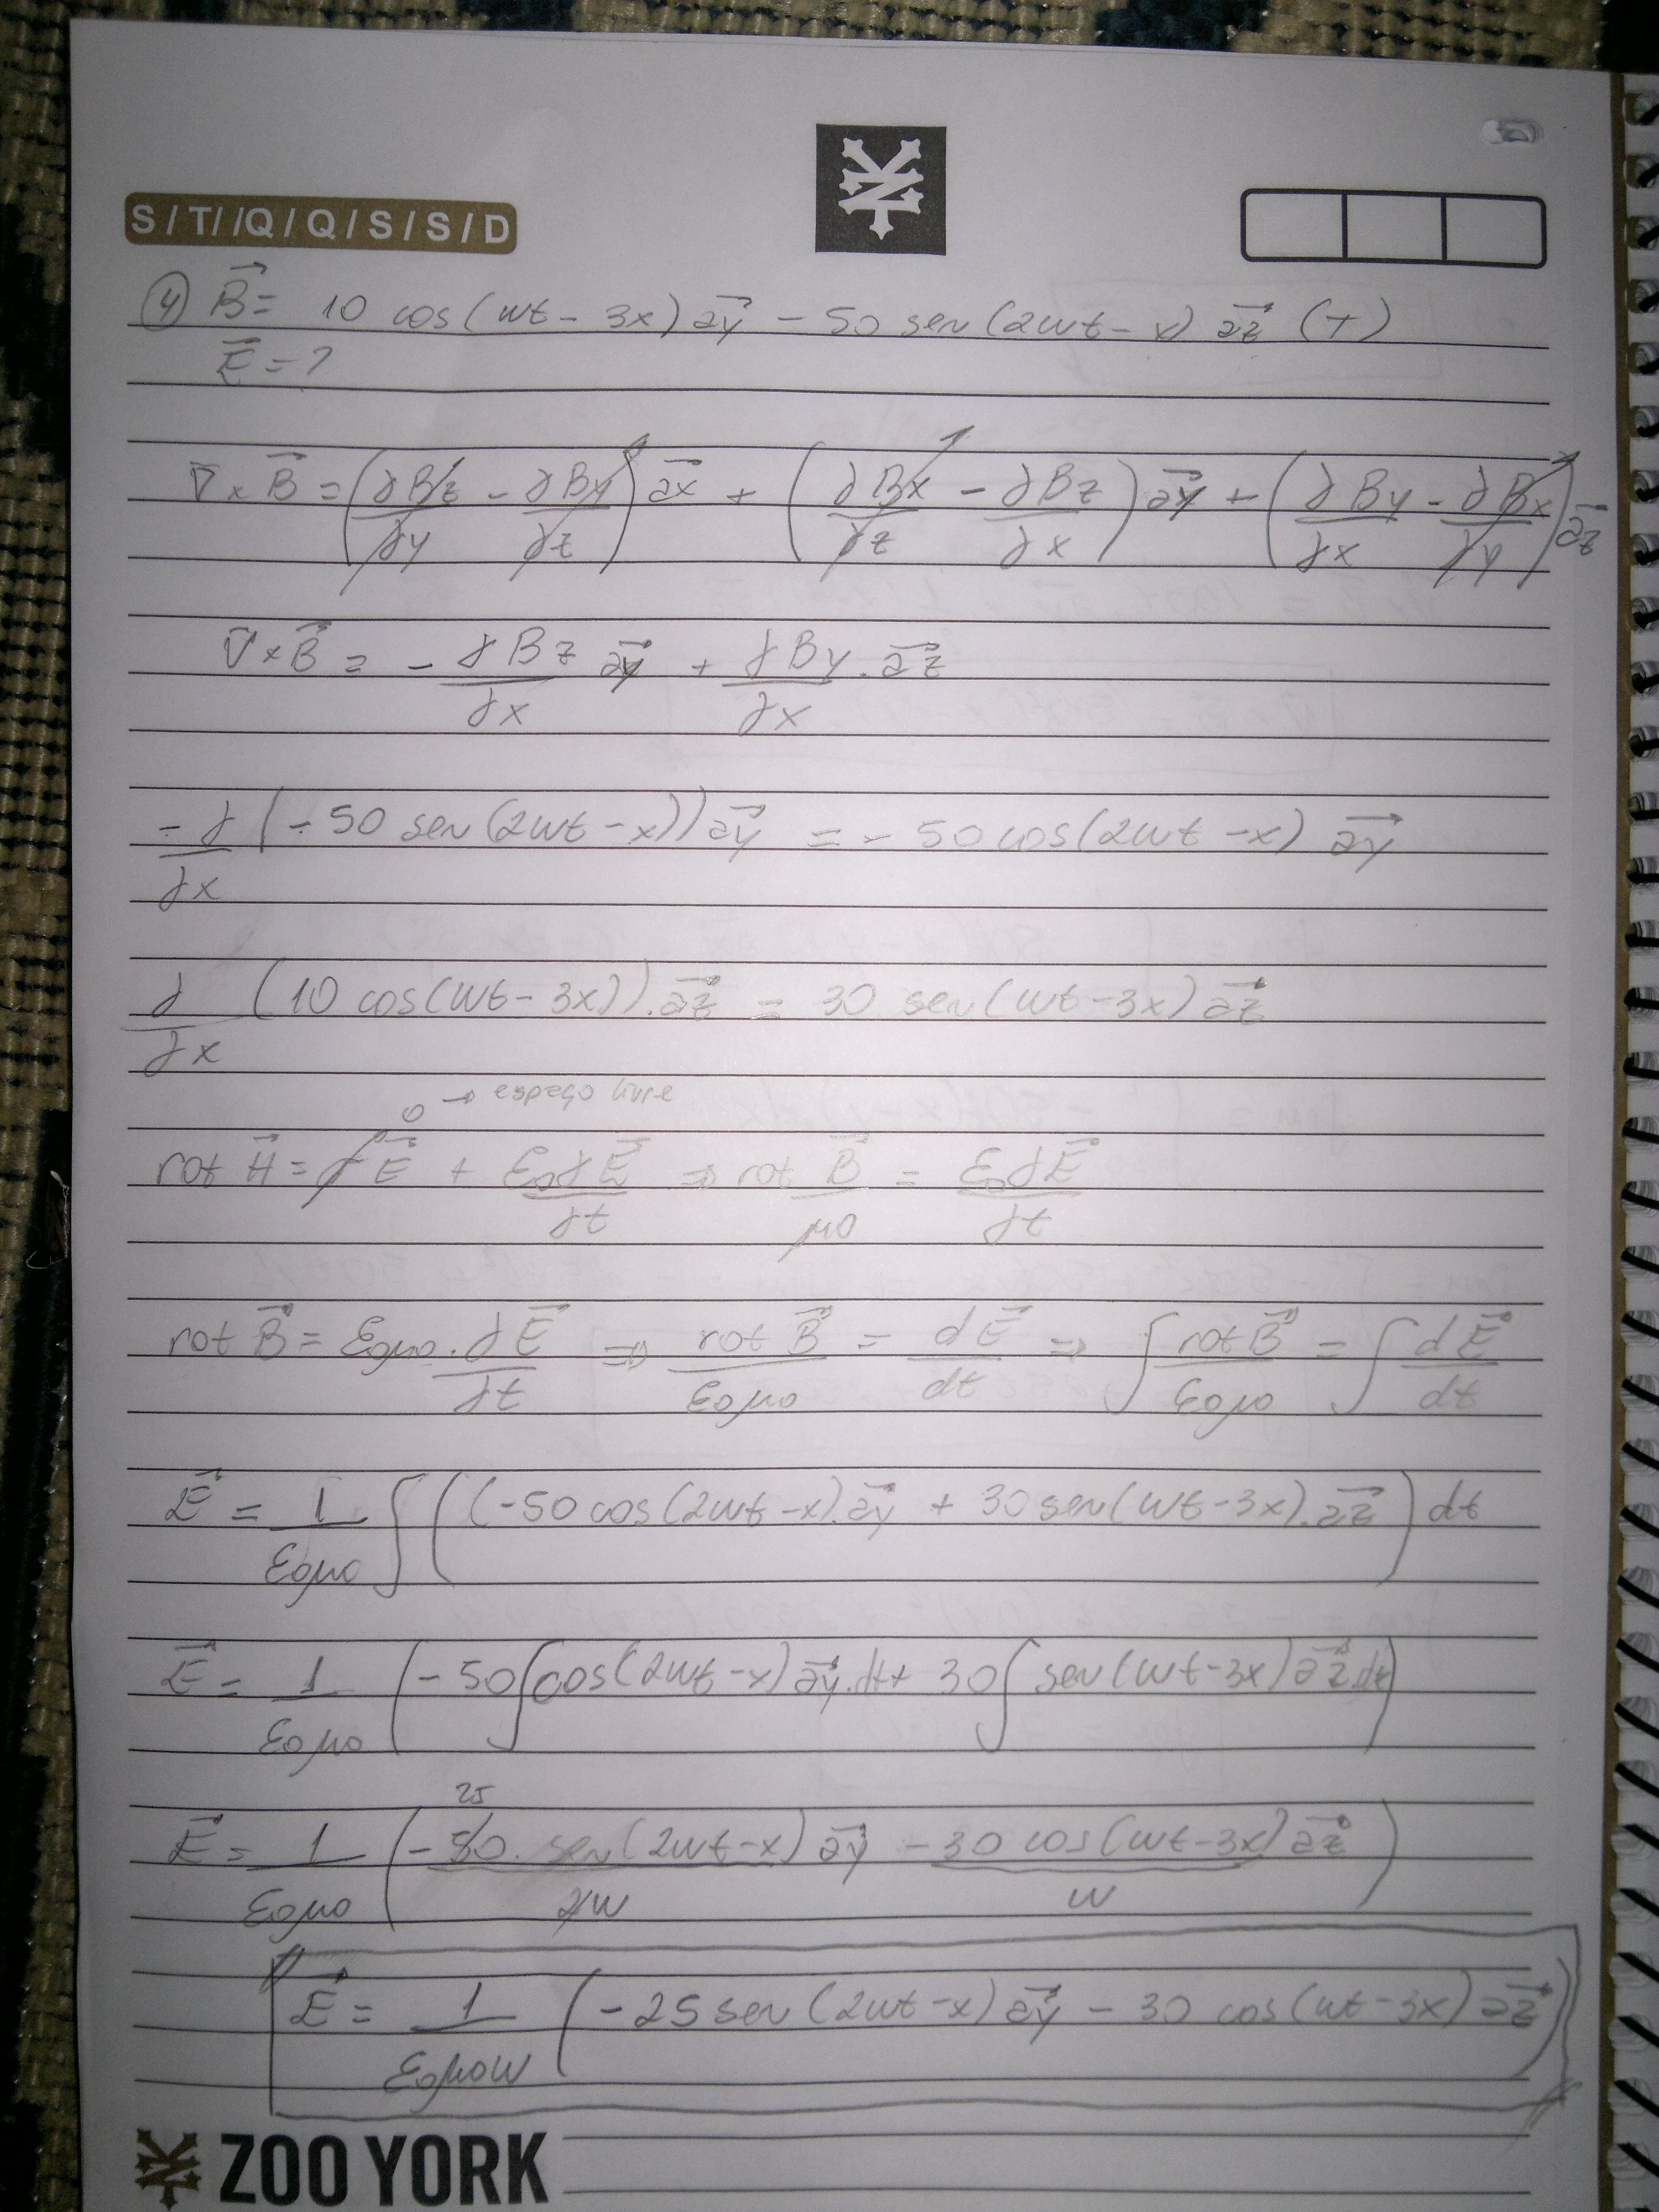 S/T//Q/Q/S/S/D
④ B⃗ = 10 cos(wt - 3x) a⃗y - 50 sen(2wt - x) a⃗z (T)
E⃗ = ?
∇ × B⃗ = (∂Bz/∂y - ∂By/∂z) a⃗x + (∂Bx/∂z - ∂Bz/∂x) a⃗y + (∂By/∂x - ∂Bx/∂y) a⃗z
∇ × B⃗ = - ∂Bz/∂x a⃗y + ∂By/∂x . a⃗z
- ∂/∂x (-50 sen(2wt - x)) a⃗y = - 50 cos(2wt - x) a⃗y
∂/∂x (10 cos(wt - 3x)) . a⃗z = 30 sen(wt - 3x) a⃗z
0 → espaço livre
rot H⃗ = γE⃗ + ε₀∂E⃗/∂t ⇒ rot B⃗/μ0 = ε₀∂E⃗/∂t
rot B⃗ = ε0μ0 . ∂E⃗/∂t ⇒ rot B⃗/ε0μ0 = dE⃗/dt ⇒ ∫ rot B⃗/ε0μ0 = ∫ dE⃗/dt
E⃗ = 1/ε0μ0 ∫ ((-50 cos(2wt - x) . a⃗y + 30 sen(wt - 3x) . a⃗z) dt
E⃗ = 1/ε0μ0 (-50 ∫ cos(2wt - x) a⃗y . dt + 30 ∫ sen(wt - 3x) a⃗z . dt)
25
E⃗ = 1/ε0μ0 (-50 . sen(2wt - x)/2w a⃗y - 30 cos(wt - 3x)/w a⃗z)
E⃗ = 1/ε0μ0w (-25 sen(2wt - x) a⃗y - 30 cos(wt - 3x) a⃗z)
ZOO YORK